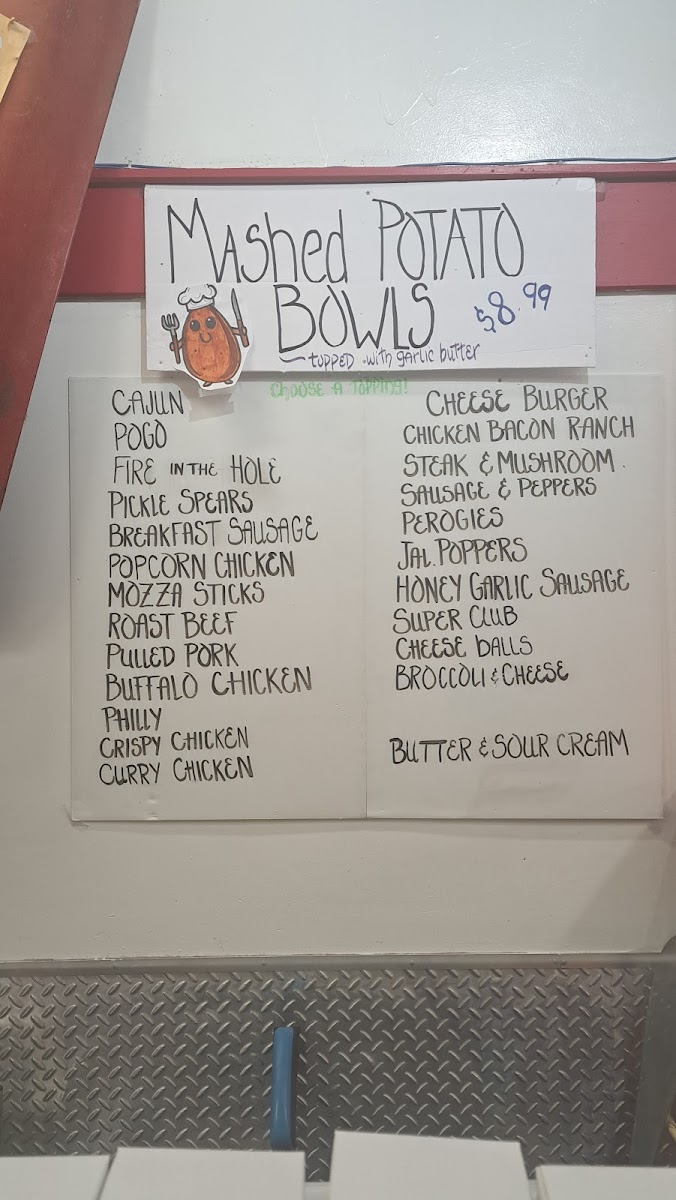 MAShed POTATO
BOWLS
$8.99
topped with garlic butter
Choose A Topping!
CAJUN
POGO
FIRE IN THE HOLE
PICKLE SPEARS
BREAKFAST SAUSAGE
POPCORN CHICKEN
MOZZA STICKS
ROAST BEEF
PULLED PORK
BUFFALO CHICKEN
PHILLY
CRISPY CHICKEN
CURRY CHICKEN
CHEESE BURGER
CHICKEN BACON RANCH
STEAK & MUSHROOM
SAUSAGE & PEPPERS
PEROGIES
JAL. POPPERS
HONEY GARLIC SAUSAGE
SUPER CLUB
CHEESE bALLS
BROCCOLI & CHEESE
BUTTER & SOUR CREAM